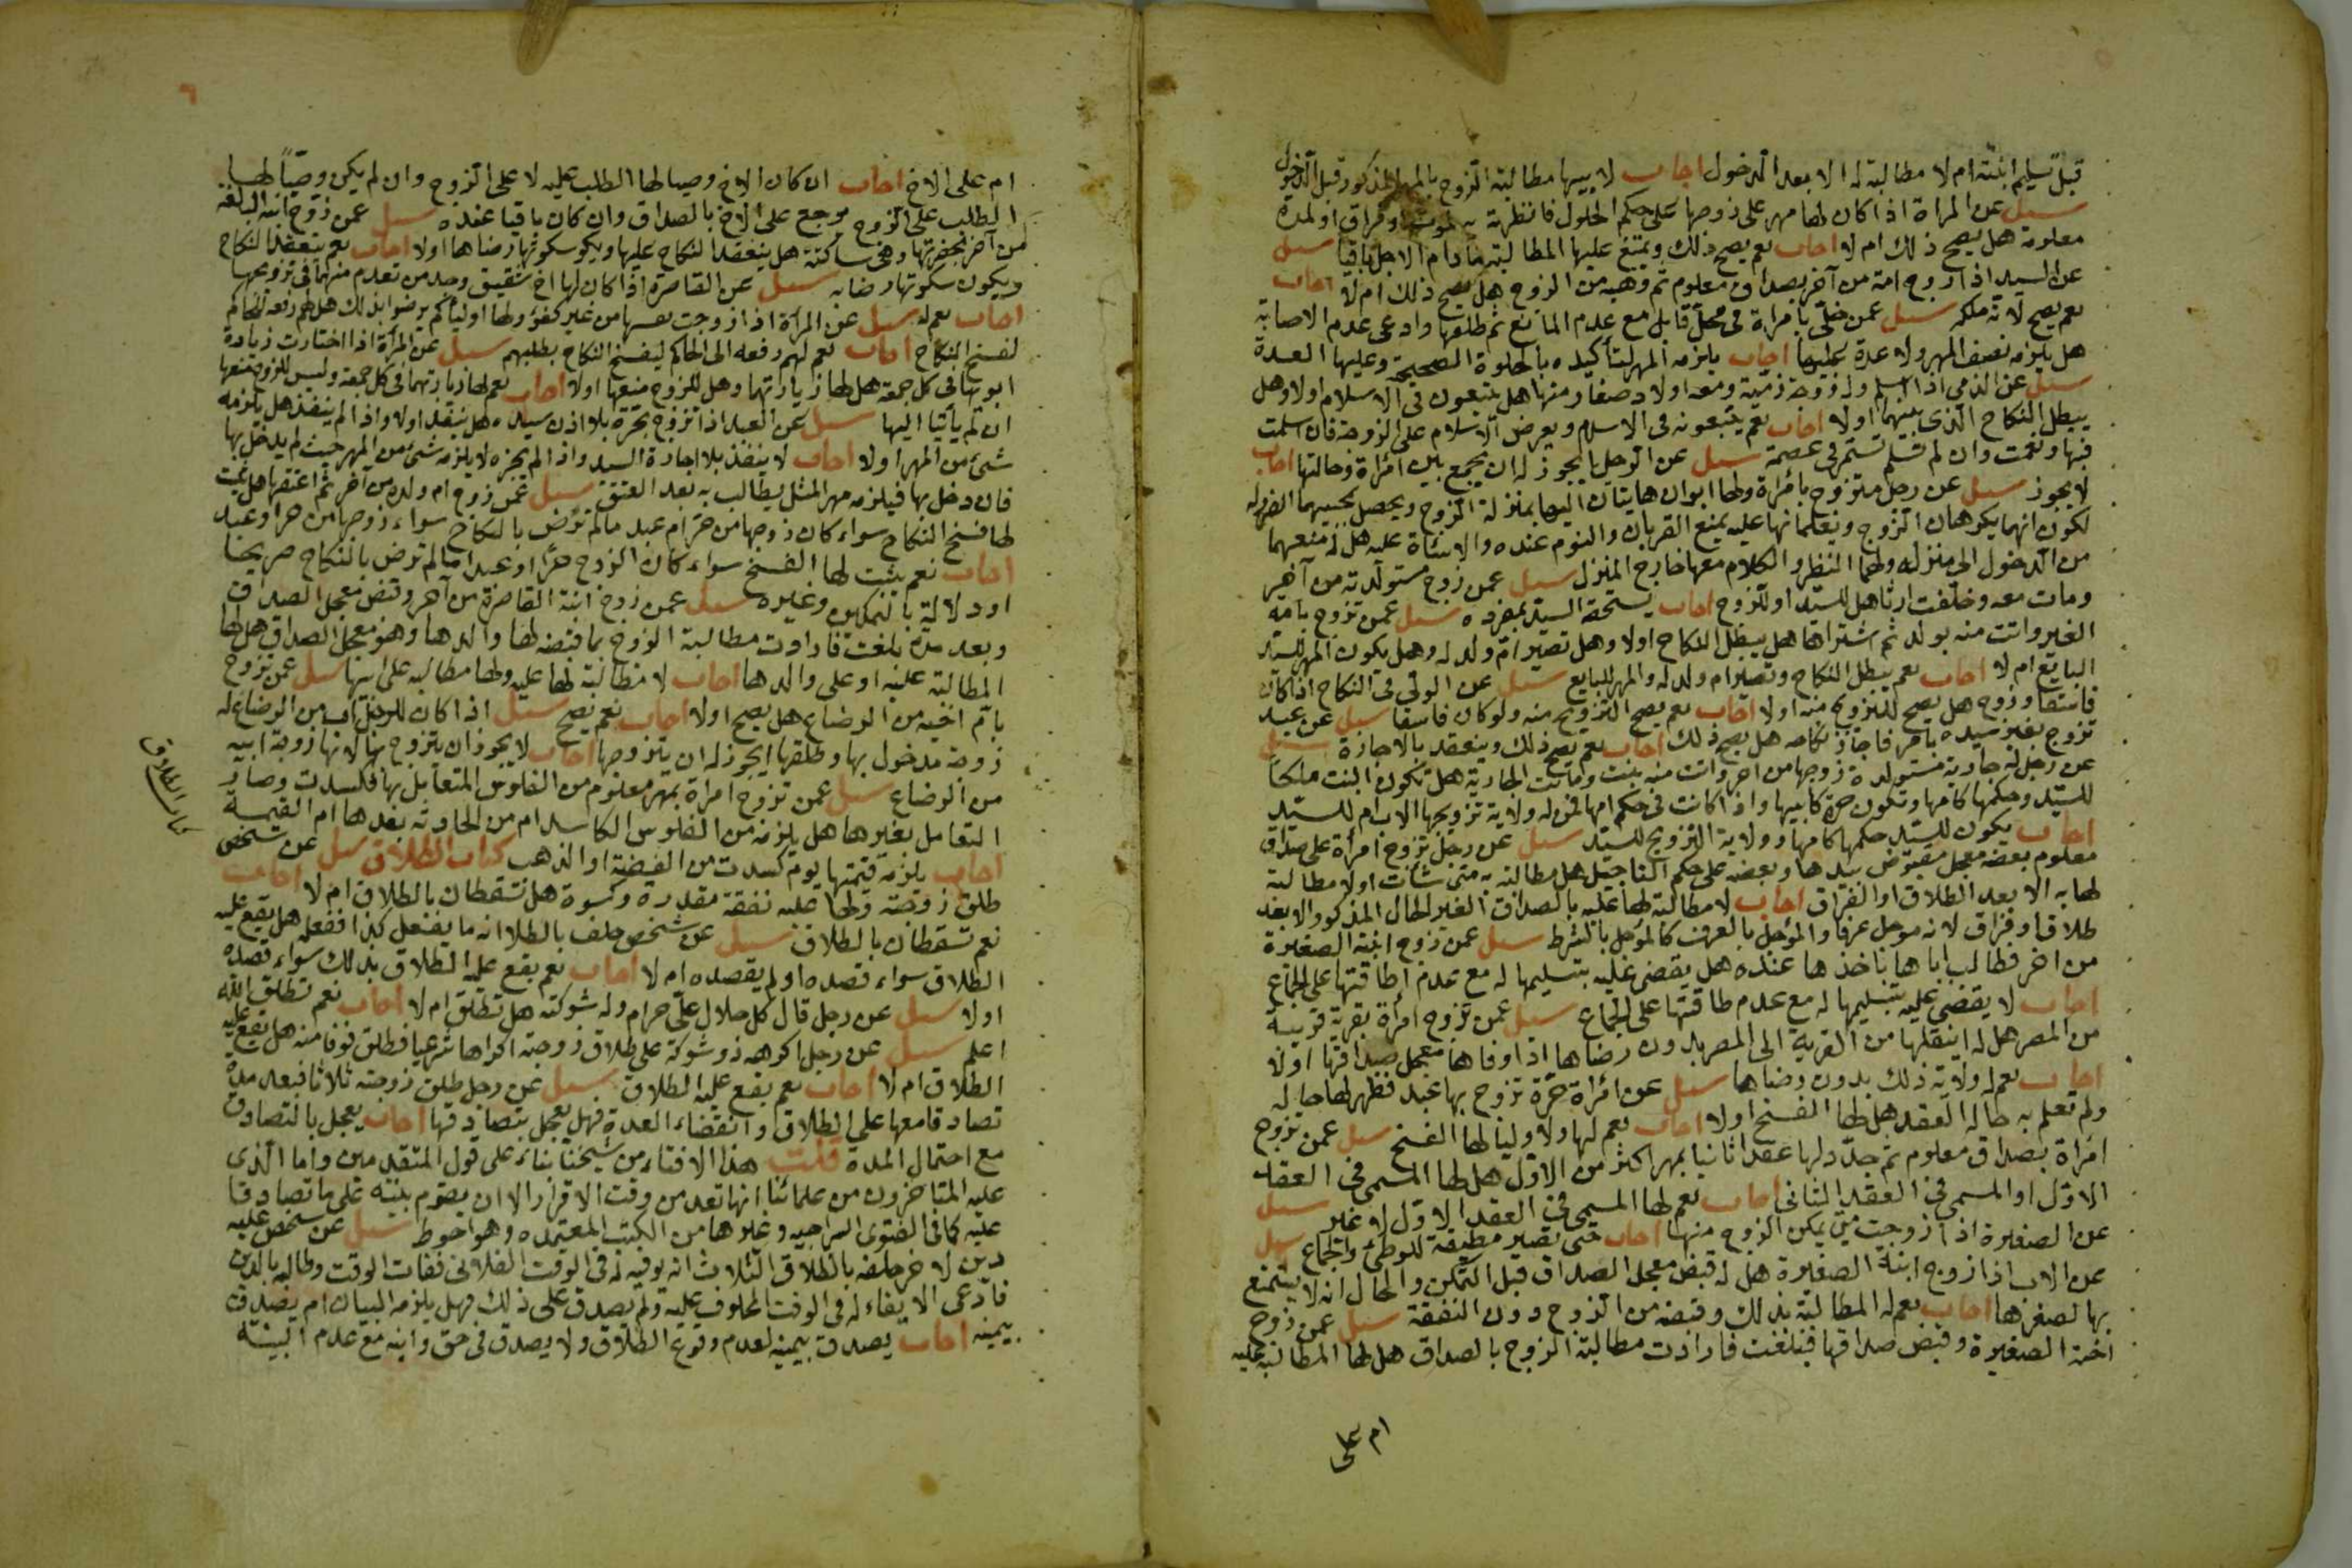 قبل تسليم ابنته ام لا مطالبة له الا بعد الدخول اجاب لابيها مطالبة الزوج بالمهر المذكور قبل الدخول
سيل عن المراة اذا كان لها مهر على زوجها على حكم الحلول فانظرته به لموت او فراق او لمدة
معلومة هل يصح ذلك ام لا اجاب نعم يصح ذلك ويمتنع عليها المطالبة ما دام الاجل باقيا سيل
عن السيد اذا زوج امته من آخر بصداق معلوم ثم وهبه من الزوج هل يصح ذلك ام لا اجاب
نعم يصح لانه ملكه سيل عمن خلى بامراة في محل قابل مع عدم المانع ثم طلقها وادعى عدم الاصابة
هل يلزمه نصف المهر ولا عدة عليها اجاب يلزمه المهر لتأكيده بالخلوة الصحيحة وعليها العدة
سيل عن الذمي اذا اسلم وله زوجة ذمية ومعه اولاد صغار منها هل يتبعون في الاسلام اولا وهل
يبطل النكاح الذي بينهما اولا اجاب نعم يتبعونه في الاسلام ويعرض الاسلام على الزوجة فان اسلمت
فبها ونعمت وان لم تسلم تستمر في عصمة سيل عن الرجل ايجوز له ان يجمع بين امراة وخالتها اجاب
لا يجوز سيل عن رجل متزوج بامراة ولها ابوان هايتان اليها بمنزلة الزوج ويحصل بمجيبهما الضرر له
لكون انهما يكرهان الزوج ويعلمانها عليه بمنع القربان والنوم عنده والاساة عليه هل له منعهما
من الدخول الى منزله ولهما النظر والكلام معها خارج المنزل سيل عمن زوج مستولدته من آخر
ومات معه وخلفت ارثا هل للسيد او للزوج اجاب يستحقه السيد بمفرده سيل عمن تزوج بامة
الغير واتت منه بولد ثم اشتراها هل يبطل النكاح اولا وهل تصير ام ولد له وهل يكون المهر للسيد
البايع ام لا اجاب نعم يبطل النكاح وتصير ام ولد له والمهر للبايع سيل عن الولي في النكاح اذا كان
فاسقا وزوج هل يصح التزويج منه اولا اجاب نعم يصح التزويج منه ولو كان فاسقا سيل عن عبد
تزوج بغير سيده بامر فاجاز نكاحه هل يصح ذلك اجاب نعم يصح ذلك وينعقد بالاجازة سيل
عن رجل له جارية مستولدة زوجها من اخر واتت منه ببنت وماتت الجارية هل تكون البنت ملكا
للسيد وحكمها كامها وتكون حرة كابيها واذا كانت في حكم امها فمن له ولاية تزويجها الاب ام للسيد
اجاب يكون للسيد حكمها كامها وولاية التزويج للسيد سيل عن رجل تزوج امرأة على صداق
معلوم بعضه معجل مقبوض بيدها وبعضه على حكم التاجيل هل مطالبته به متى شأت اولا مطالبة
لها به الا بعد الطلاق او الفراق اجاب لا مطالبة لها عليه بالصداق الغير الحال المذكور الا بعد
طلاق او فراق لانه موجل عرفا والمؤجل بالعرف كالمؤجل بالشرط سيل عمن زوج ابنته الصغيرة
من اخر فطالب اباها باخذها عنده هل يقضى عليه بتسليمها له مع عدم اطاقتها على الجماع
اجاب لا يقضى عليه بتسليمها له مع عدم طاقتها على الجماع سيل عمن تزوج امرأة بقرية قريبة
من المصر هل له اينقلها من القرية الى المصر بدون رضاها اذا اوفاها معجل صداقها اولا
اجاب نعم له ولاية ذلك بدون رضاها سيل عن امراة حرة تزوج بها عبد فظهر لها حاله
ولم تعلم به حالة العقد هل لها الفسخ اولا اجاب نعم لها ولاوليا لها الفسخ سيل عمن تزوج
امراة بصداق معلوم ثم جدد لها عقدا ثانيا بمهر اكثر من الاول هل لها المسمى في العقد
الاول او المسمى في العقد الثاني اجاب نعم لها المسمى في العقد الاول لا غير سيل
عن الصغيرة اذا زوجت متى يمكن الزوج منها اجاب حتى تصير مطيقة للوطئ والجماع سيل
عن الاب اذا زوج ابنته الصغيرة هل له قبض معجل الصداق قبل التمكن والحال انه لا يستمتع
بها لصغرها اجاب نعم له المطالبة بذلك وقبضه من الزوج دون النفقة سيل عمن زوج
اخته الصغيرة وقبض صداقها فبلغت فارادت مطالبة الزوج بالصداق هل لها المطالبة عليه
ام على
٦
ام على الاخ اجاب ان كان الاخ وصيا لها الطلب عليه لا على الزوج وان لم يكن وصيا لها
الطلب على الزوج ورجع على الاخ بالصداق وان كان باقيا عنده سيل عمن زوج ابنته البالغة
من آخر بحضرتها وهي ساكتة هل ينعقد النكاح عليها ويكو سكوتها رضاها اولا اجاب نعم ينعقد النكاح
ويكون سكوتها رضا به سيل عن القاصرة اذا كان لها اخ شقيق وجد من تقدم منهما في تزويجها
اجاب نعم له سيل عن المرأة اذا زوجت نفسها من غير كفؤ ولها اوليا لم يرضوا بذلك هل لهم رفعه للحاكم
لفسخ النكاح اجاب نعم لهم رفعه الى الحاكم ليفسخ النكاح بطلبهم سيل عن المرأة اذا اختارت زيادة
ابويها في كل جمعة هل لها زيارتهما وهل للزوج منعها اولا اجاب نعم لها زيارتهما في كل جمعة وليس للزوج منعها
ان لم يأتيا اليها سيل عن العبد اذا تزوج بحرة بلا اذن سيده هل ينفذ اولا واذا لم ينفذ هل يلزمه
شئ من المهر اولا اجاب لا ينفذ بلا اجازة السيد واذا لم يجزه لا يلزمه شئ من المهر حيث لم يدخل بها
فان دخل بها فيلزمه مهر المثل يطالب به بعد العتق سيل عمن زوج ام ولده من آخر ثم اعتقها هل يثبت
لها فسخ النكاح سواء كان زوجها من حر ام عبد مالم ترض بالنكاح سواء زوجها من حر او عبد
اجاب نعم يثبت لها الفسخ سواء كان الزوج حرا او عبدا مالم ترض بالنكاح صريحا
او دلالة بالتمكين وغيره سيل عمن زوج ابنته القاصرة من آخر وقبض معجل الصداق
وبعد مدة بلغت فارادت مطالبة الزوج بما قبضه لها والدها وهو معجل الصداق هل لها
المطالبة عليه او على والدها اجاب لا مطالبة لها عليه ولها مطالبه على ابيها سيل عمن تزوج
بام اخيه من الرضاع هل يصح اولا اجاب نعم يصح سيل اذا كان للرجل اب من الرضاع له
زوجة مدخول بها وطلقها ايجوز له ان يتزوجها اجاب لا يجوز ان يتزوج بها لانها زوجة ابيه
من الرضاع سيل عمن تزوج امراة بمهر معلوم من الفلوس المتعامل بها فكسدت وصار
التعامل بغيرها هل يلزمه من الفلوس الكاسد ام من الحادثة بعدها ام القيمة
اجاب يلزمه قيمتها يوم كسدت من الفضة او الذهب كتاب الطلاق سيل عن شخص
طلق زوجته ولها عليه نفقة مقدرة وكسوة هل تسقطان بالطلاق ام لا اجاب
نعم تسقطان بالطلاق سيل عن شخص حلف بالطلا انه ما يفعل كذا ففعله هل يقع عليه
الطلاق سواء قصده او لم يقصده ام لا اجاب نعم يقع عليه الطلاق بذلك سواء قصده
اولا سيل عن رجل قال كل حلال علي حرام وله شوكته هل تطلق ام لا اجاب نعم تطلق الله
اعلم سيل عن رجل اكرهه ذو شوكة على طلاق زوجته اكراها شرعيا فطلق خوفا منه هل يقع عليه
الطلاق ام لا اجاب نعم يقع عليه الطلاق سيل عن رجل طلق زوجته ثلاثا فبعد مدة
تصادقا معها على الطلاق وانقضاء العدة فهل يعجل بتصادقها اجاب يعجل بالتصادق
مع احتمال المدة قلت هذا الافتاء من شيخنا بناء على قول المتقدمين واما الذي
عليه المتاخرون من علمائنا انها تعد من وقت الاقرار الا ان يقوم بينة على ما تصادقا
عليه كما في الفتوى السراجيه وغيرها من الكتب المعتمده وهو احوط سيل عن شخص عليه
دين لاخر حلفه بالطلاق الثلاث انه يوفيه له في الوقت الفلاني ففات الوقت وطالبه بالدين
فادعى الايفاء له في الوقت المحلوف عليه ولم يصدق على ذلك فهل يلزمه البيان ام يصدق
بيمينه اجاب يصدق بيمينه لعدم وقوع الطلاق ولا يصدق في حق وابنه مع عدم البينة
كتاب الطلاق